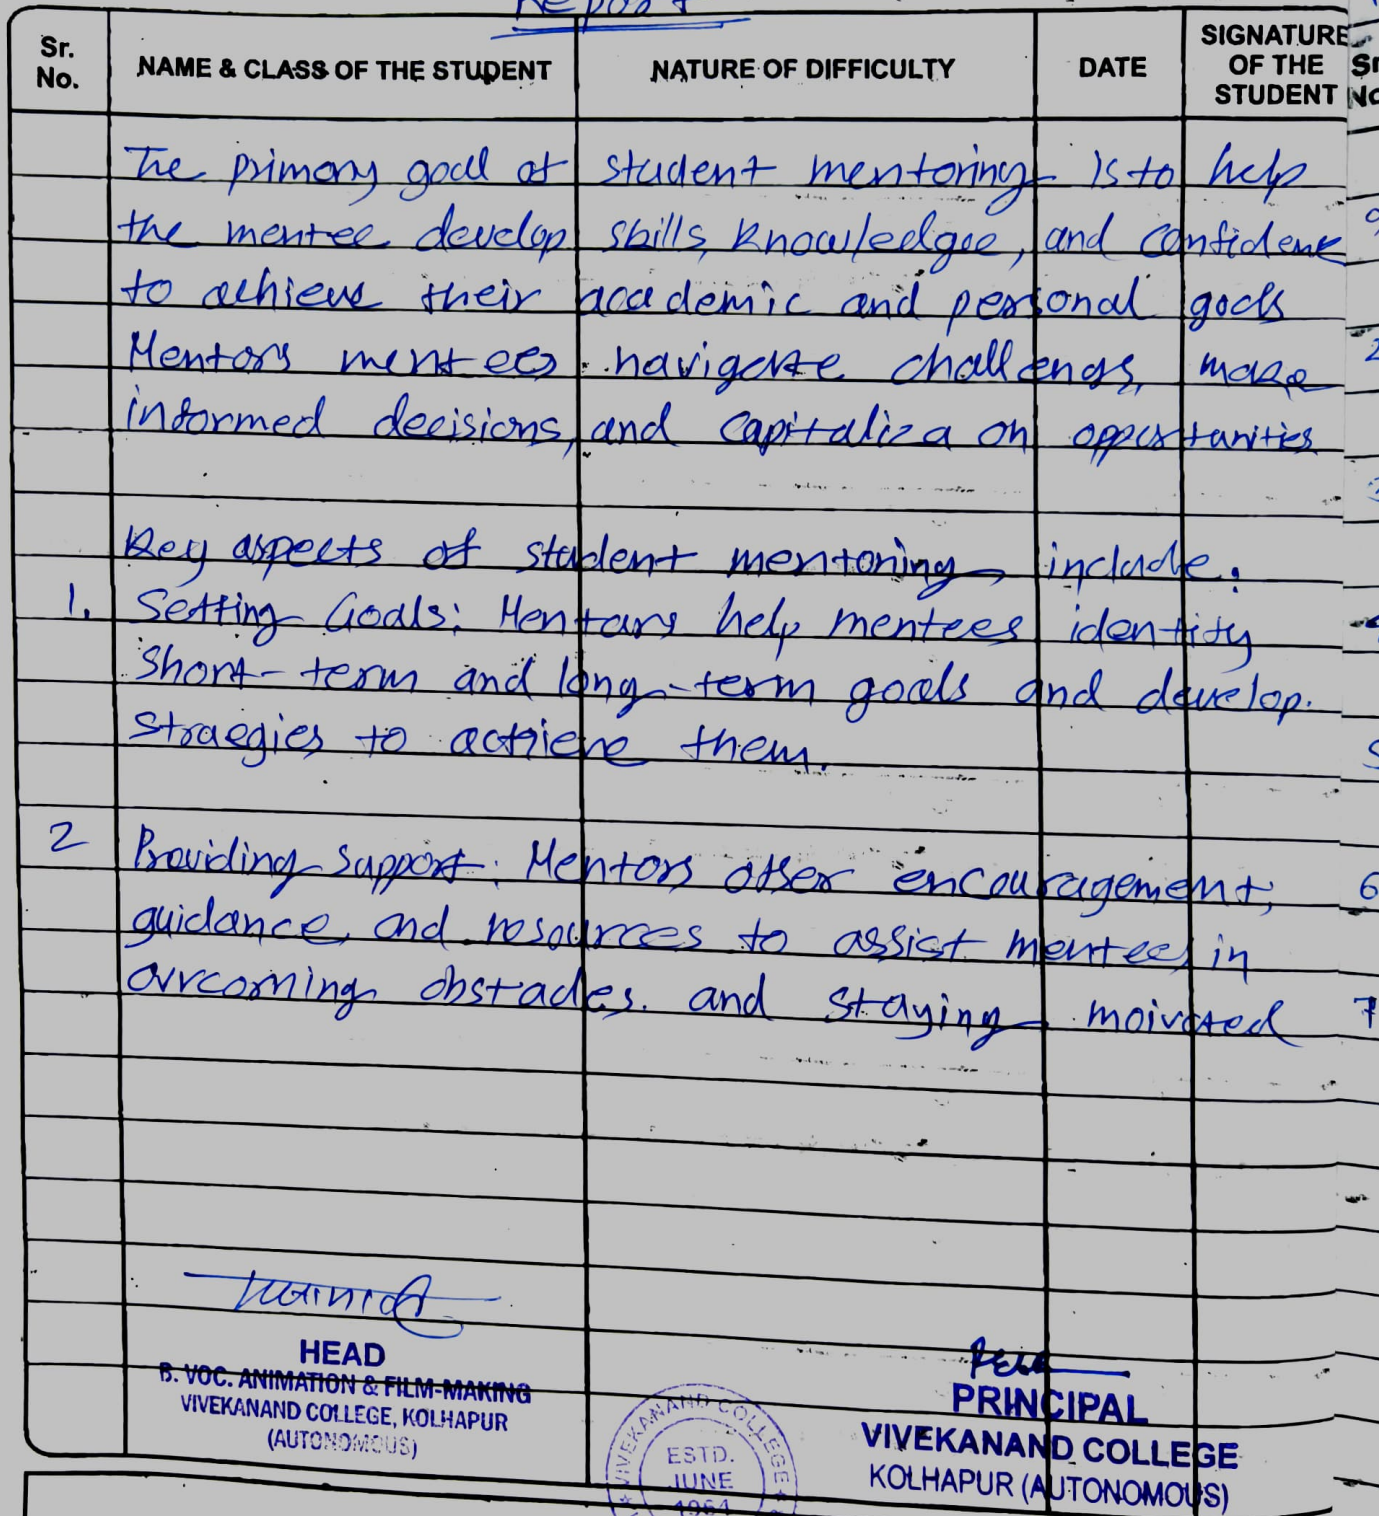 Report
Sr. No. NAME & CLASS OF THE STUDENT NATURE OF DIFFICULTY DATE SIGNATURE OF THE STUDENT
The primary goal of student mentoring is to help
the mentee develop skills, knowledgee, and confidenc
to achieve their academic and personal goals
Mentors mentees navigate challengs, make
informed decisions, and capitaliza on opportunities
Key aspects of student mentoring include.
1. Setting Goals: Mentors help mentees identity
Short-term and long-term goals and develop.
straegies to achieve them.
2 Providing Support: Mentors offer encouragement,
guidance, and resources to assist mentees in
ovrcoming obstacles. and staying moivated
HEAD
B. VOC. ANIMATION & FILM-MAKING
VIVEKANAND COLLEGE, KOLHAPUR
(AUTONOMOUS)
VIVEKANAND COLLEGE
ESTD.
JUNE
1964
PRINCIPAL
VIVEKANAND COLLEGE
KOLHAPUR (AUTONOMOUS)
Sr
No
2
3
5
6
7